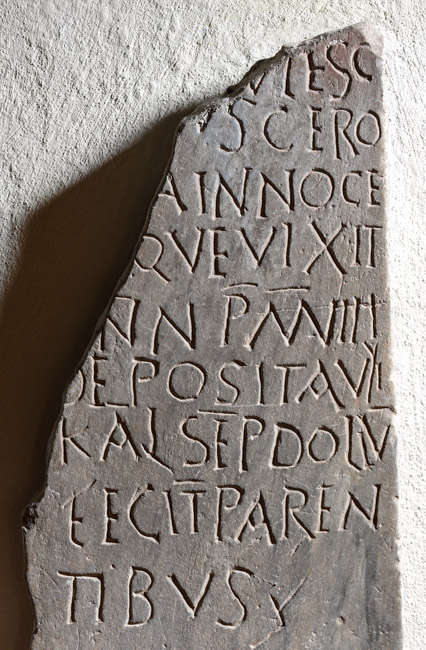 VIESC
VSCERO
A INNOCE
QVE VIXIT
ANN P M ANIIII
DEPOSITA VII
KAL SEP DOLV
FECIT PAREN
TIBVS